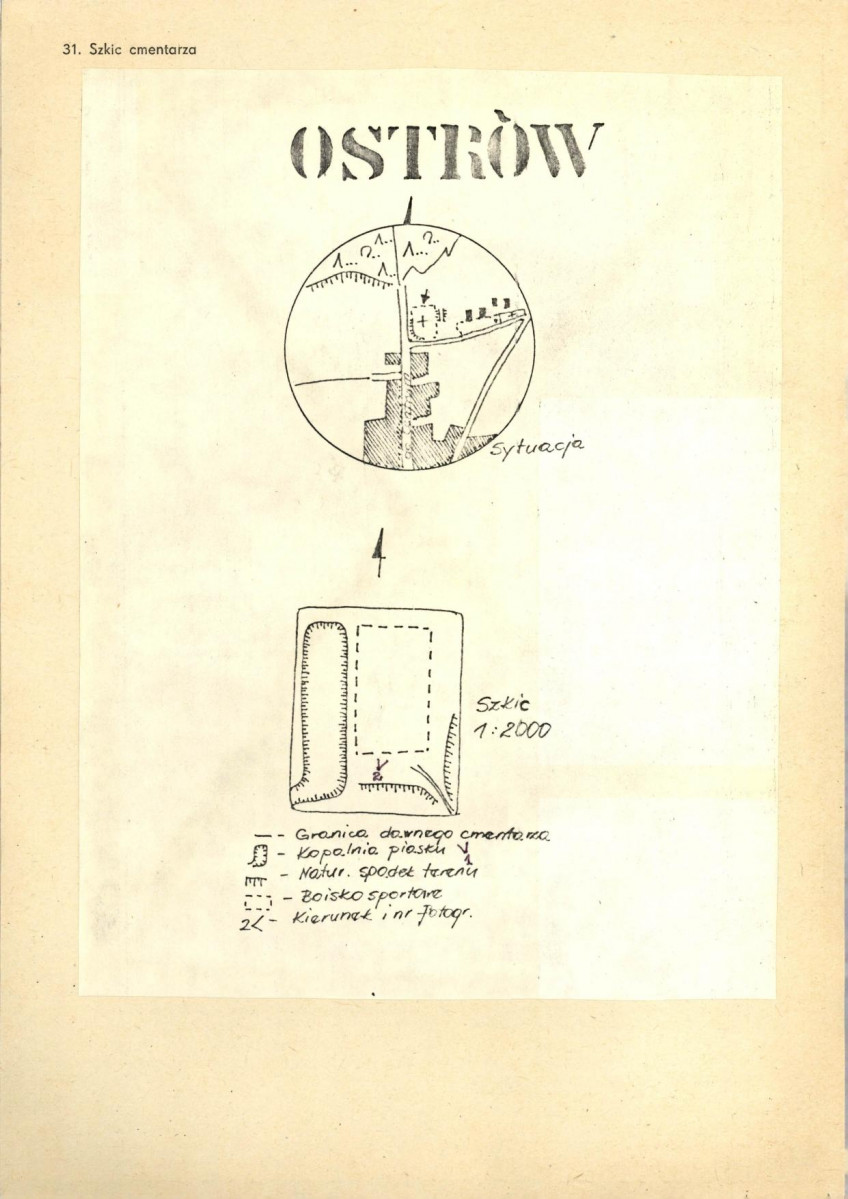 31. Szkic cmentarza
OSTRÒW
1... ?.. 1.. 1.. 1... ?..
Sytuacja
Szkic
1:2000
2
— - Granica dawnego cmentarza
- Kopalnia piasku 1
- Natur. spadek terenu
- Boisko sportowe
2< - Kierunek i nr fotogr.